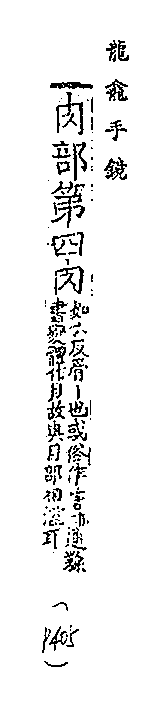 龍龕手鏡
肉部第四肉
如六反骨丨也或俗作宍亦通隸
書變體作月故與月部相濫耳
(P405)